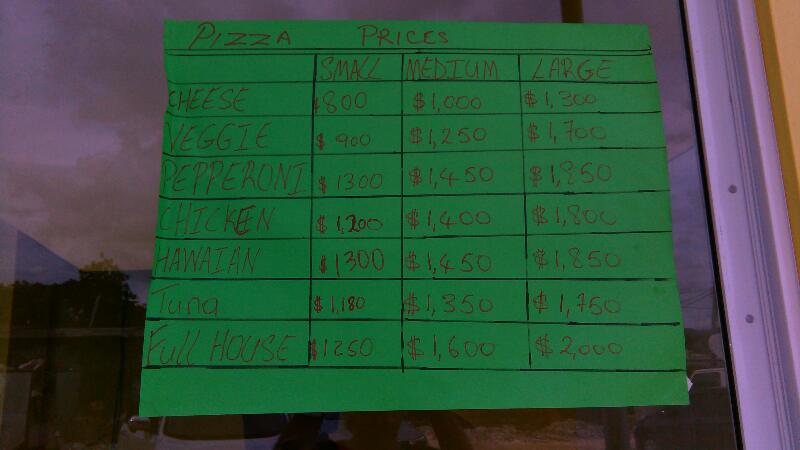 PIZZA PRICES
SMALL MEDIUM LARGE
CHEESE $800 $1,000 $1,300
VEGGIE $900 $1,250 $1,700
PEPPERONI $1300 $1,450 $1,850
CHICKEN $1,200 $1,400 $1,800
HAWAIAN $1300 $1,450 $1,850
Tuna $1,180 $1,350 $1,750
Full HOUSE $1250 $1,600 $2,000